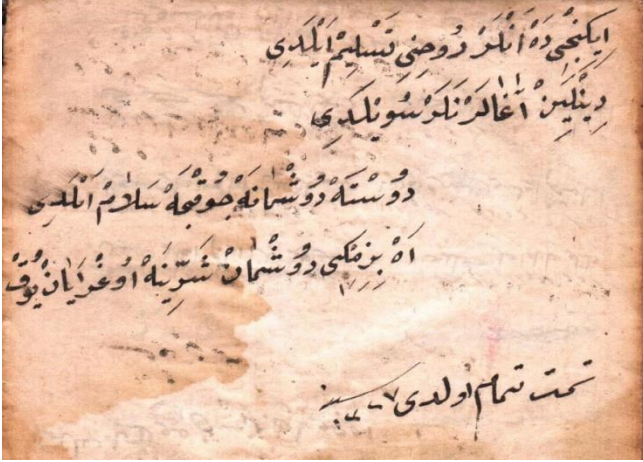 اِيكِنْجِى دَهْ اَنْلَرْ رُوحِنِى تَسْلِيمْ اَيْلَدِى
دِينْكَلَيِنْ آغَالَرْ نَلَرْ سُويْلَدِى
دُوسْتَهْ دُوشْمَانَهْ جُوقْجَهْ سَلَامْ اَيْلَدِى
اَهْ بِزِمْكِى دُوشْمَانْ شَرِّينَهْ اُوغْرَايَانْ يُوقْ
تمت تمام اولدى